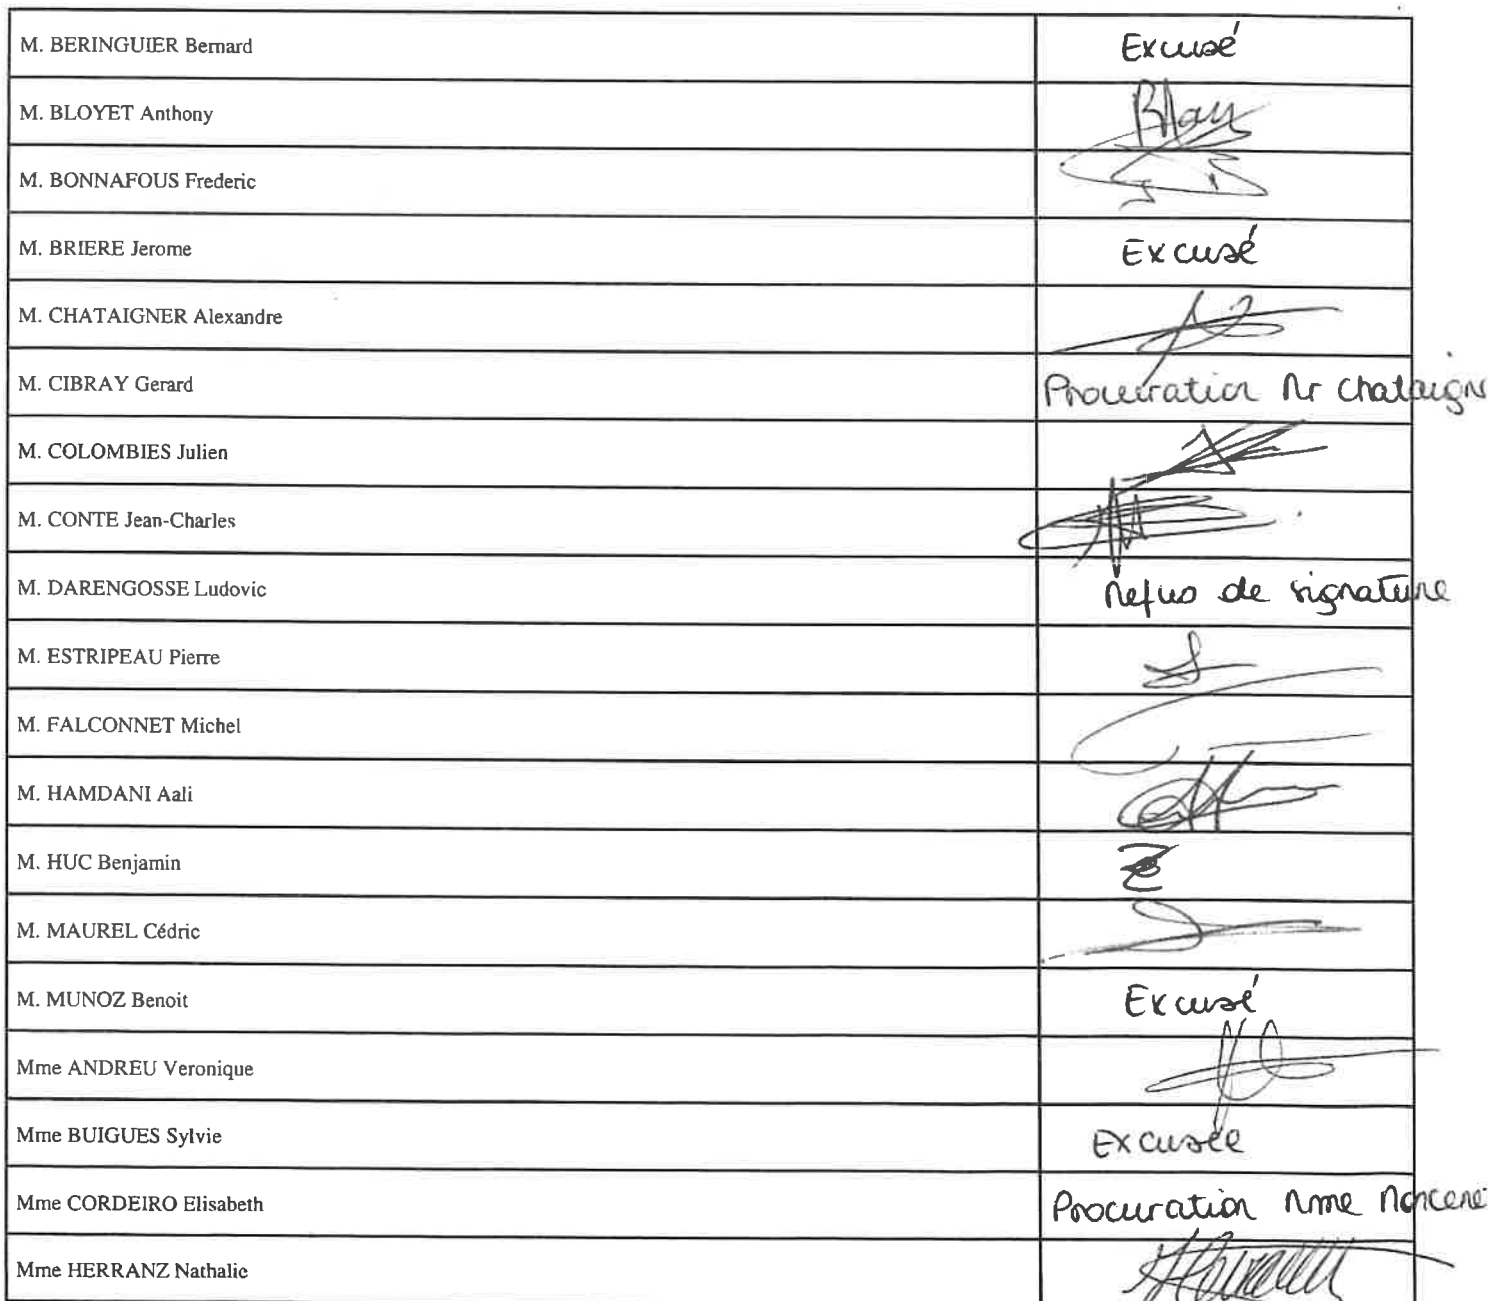 M. BERINGUIER Bernard Excusé
M. BLOYET Anthony
M. BONNAFOUS Frederic
M. BRIERE Jerome Excusé
M. CHATAIGNER Alexandre
M. CIBRAY Gerard Procuration Mr Chataign
M. COLOMBIES Julien
M. CONTE Jean-Charles
M. DARENGOSSE Ludovic Refus de signature
M. ESTRIPEAU Pierre
M. FALCONNET Michel
M. HAMDANI Aali
M. HUC Benjamin
M. MAUREL Cédric
M. MUNOZ Benoit Excusé
Mme ANDREU Veronique
Mme BUIGUES Sylvie Excusée
Mme CORDEIRO Elisabeth Procuration Mme
Mme HERRANZ Nathalie